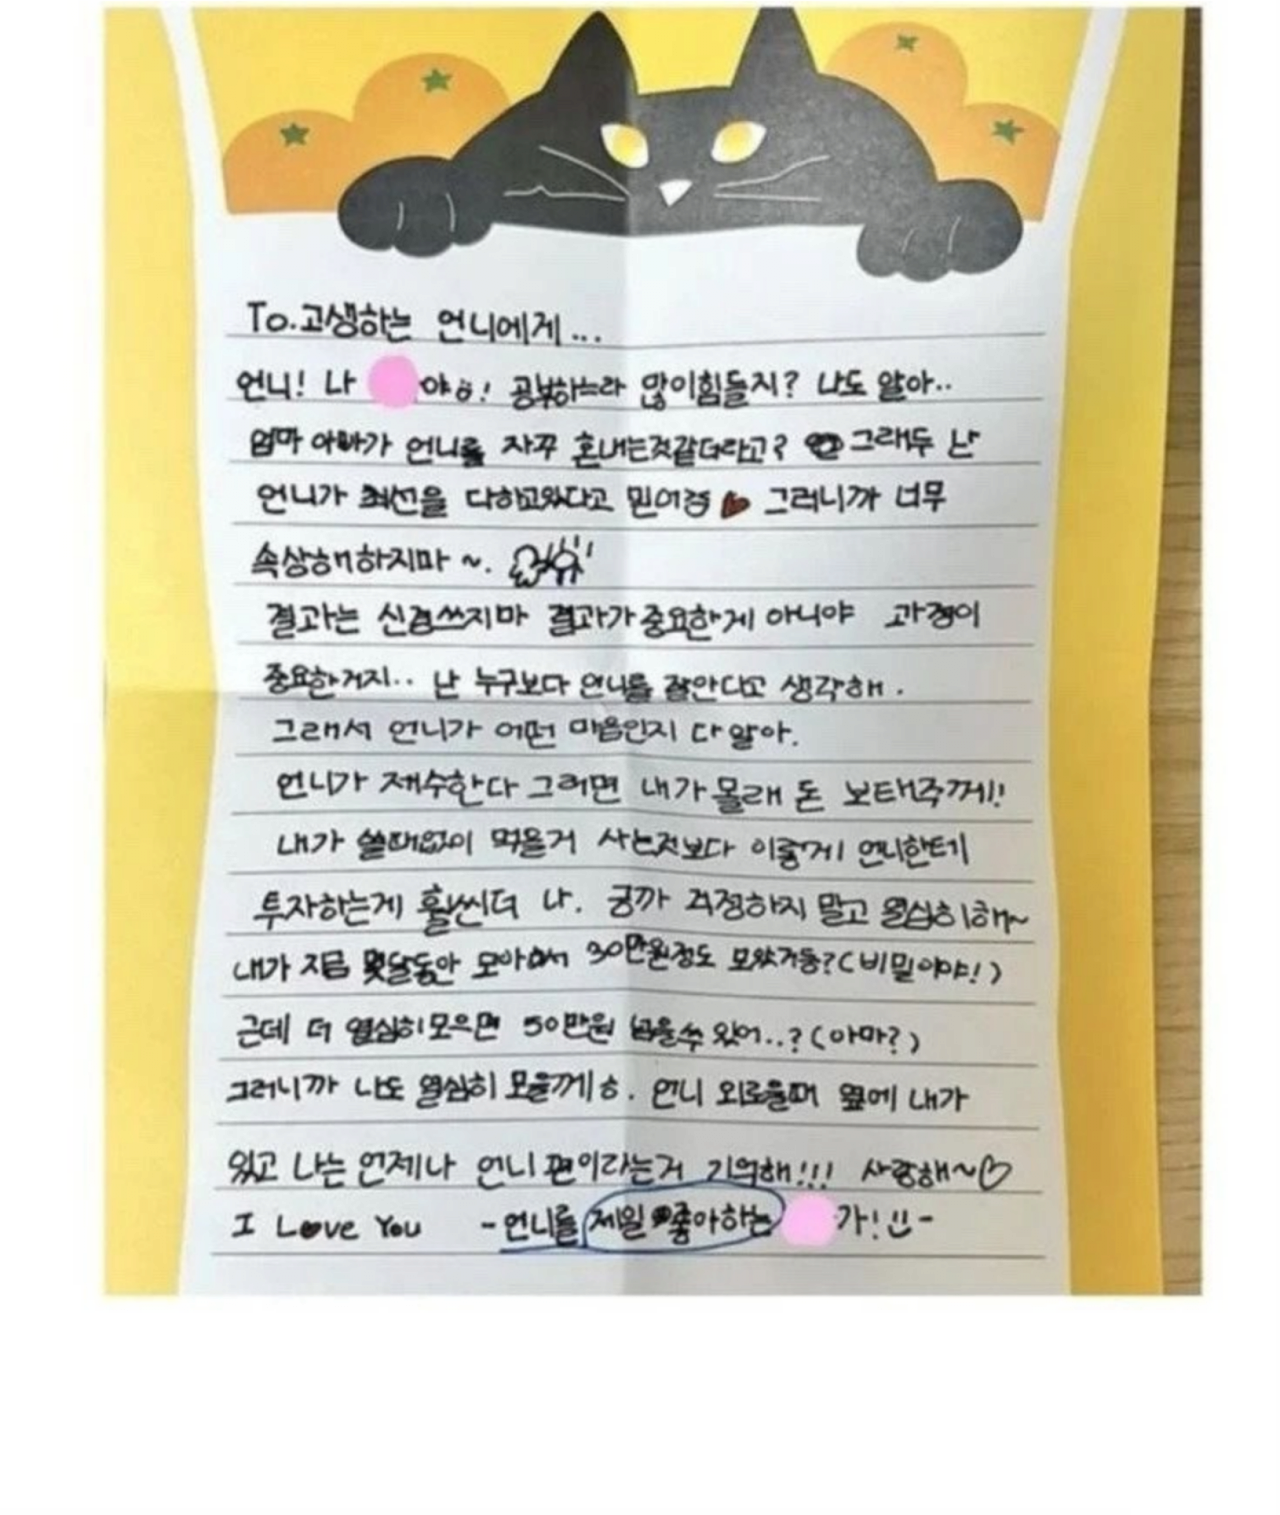 To.고생하는 언니에게...
언니! 나 야ㅎ! 공부하느라 많이힘들지? 나도 알아..
엄마 아빠가 언니를 자꾸 혼내는것같더라고? 그래두 난
언니가 최선을 다하고있다고 믿어경 그러니까 너무
속상해하지마~.
결과는 신경쓰지마 결과가 중요한게 아니야 과정이
중요한거지.. 난 누구보다 언니를 잘안다고 생각해.
그래서 언니가 어떤 마음인지 다 알아.
언니가 재수한다 그러면 내가 몰래 돈 보태주께!!
내가 쓸때없이 먹을거 사는것보다 이렇게 언니한테
투자하는게 훨씬더 나. 긍까 걱정하지 말고 열심히해~
내가 지금 몇달동안 모아서 30만원정도 모았거등?(비밀이야!)
근데 더 열심히모으면 50만원 넘을쑤 있어..?(아마?)
그러니까 나도 열심히 모을께ㅎ. 언니 외로울때 옆에 내가
있고 나는 언제나 언니 편이라는거 기억해!!! 사랑해~♡
I Love You -언니를 제일 좋아하는 가!-